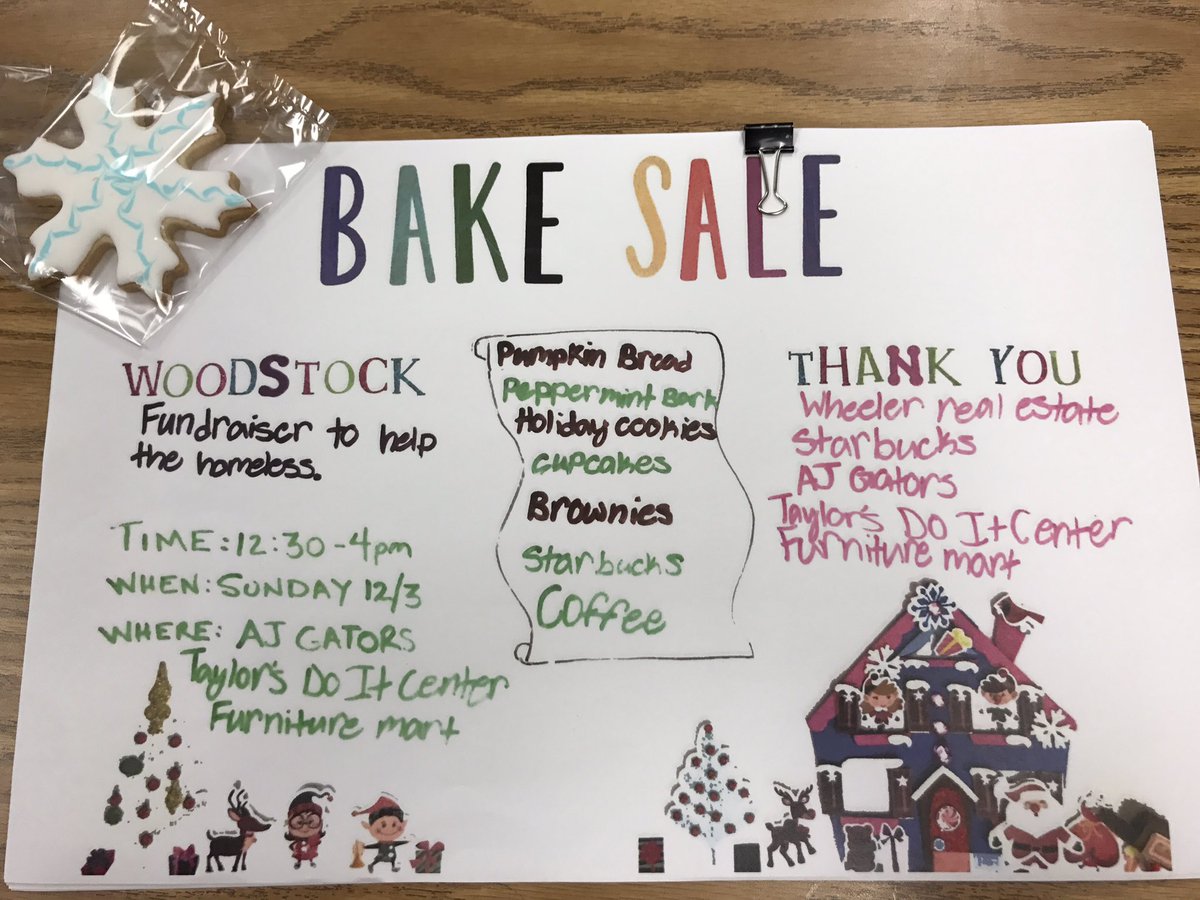 BAKE SALE
WOODSTOCK
Fundraiser to help
the homeless.
TIME: 12:30-4pm
WHEN: SUNDAY 12/3
WHERE: AJ GATORS
Taylor's Do It Center
Furniture mart
Pumpkin Bread
Peppermint Bark
Holiday cookies
cupcakes
Brownies
Starbucks
Coffee
THANK YOU
Wheeler real estate
Starbucks
AJ Gators
Taylor's Do It Center
Furniture mart